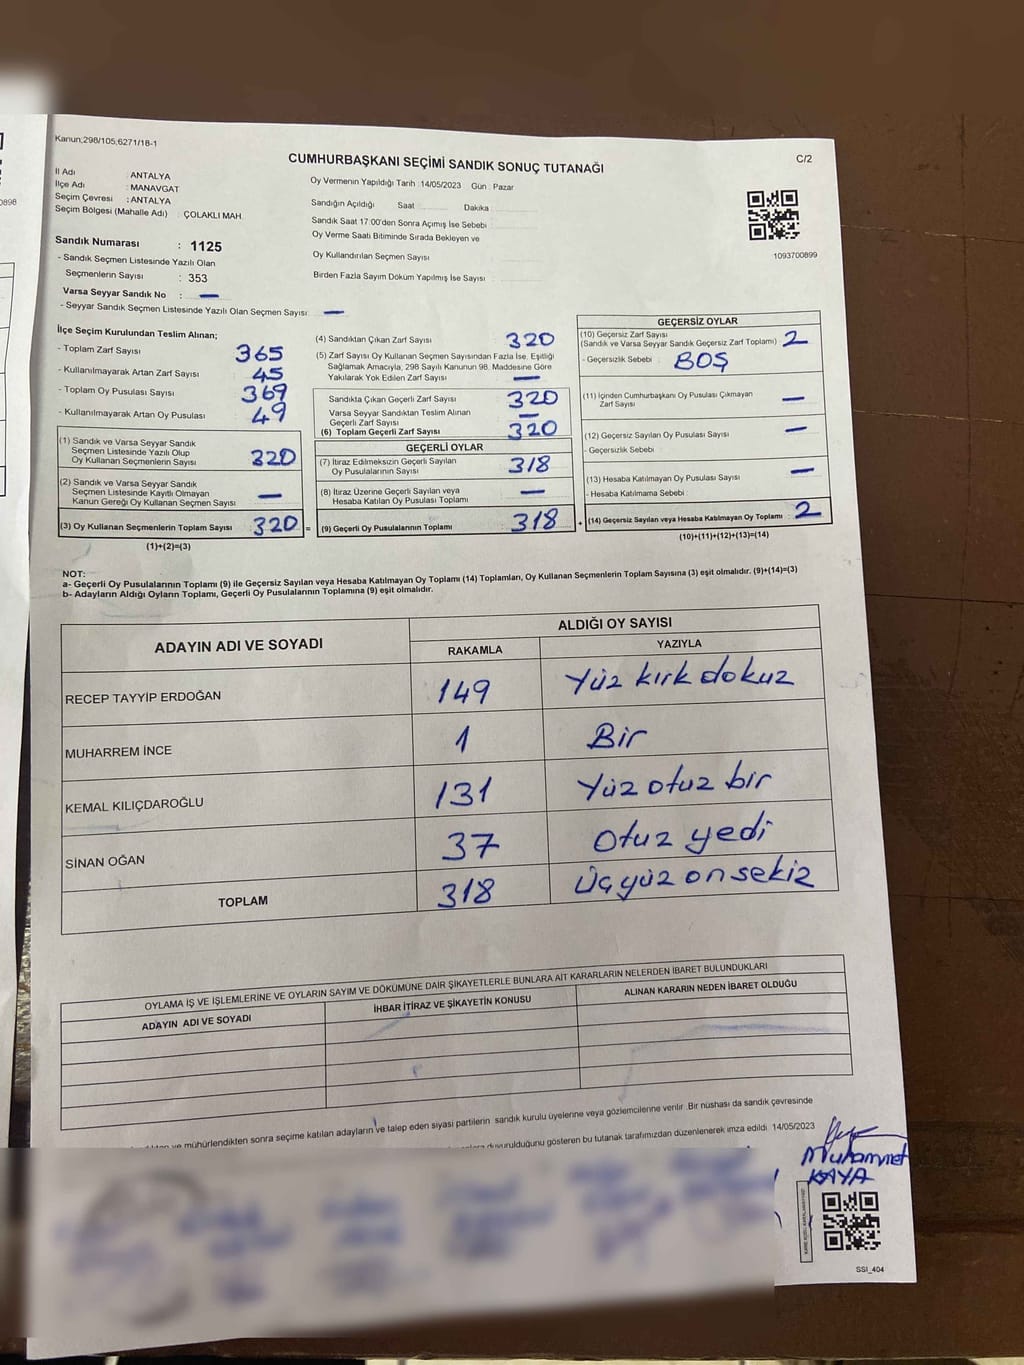 Kanun;298/105,6271/18-1
CUMHURBAŞKANI SEÇİMİ SANDIK SONUÇ TUTANAĞI
C/2
İl Adı : ANTALYA
İlçe Adı : MANAVGAT
Seçim Çevresi : ANTALYA
Seçim Bölgesi (Mahalle Adı) : ÇOLAKLI MAH.
Oy Vermenin Yapıldığı Tarih : 14/05/2023 Gün : Pazar
Sandığın Açıldığı Saat Dakika
Sandık Saat 17:00'den Sonra Açımış İse Sebebi
Oy Verme Saati Bitiminde Sırada Bekleyen ve
Oy Kullandırılan Seçmen Sayısı
Birden Fazla Sayım Döküm Yapılmış İse Sayısı
1093700899
Sandık Numarası : 1125
- Sandık Seçmen Listesinde Yazılı Olan
Seçmenlerin Sayısı : 353
Varsa Seyyar Sandık No : —
- Seyyar Sandık Seçmen Listesinde Yazılı Olan Seçmen Sayısı —
İlçe Seçim Kurulundan Teslim Alınan;
- Toplam Zarf Sayısı 365
- Kullanılmayarak Artan Zarf Sayısı 45
- Toplam Oy Pusulası Sayısı 369
- Kullanılmayarak Artan Oy Pusulası 49
(1) Sandık ve Varsa Seyyar Sandık
Seçmen Listesinde Yazılı Olup
Oy Kullanan Seçmenlerin Sayısı 320
(2) Sandık ve Varsa Seyyar Sandık
Seçmen Listesinde Kayıtlı Olmayan
Kanun Gereği Oy Kullanan Seçmen Sayısı —
(3) Oy Kullanan Seçmenlerin Toplam Sayısı 320 =
(1)+(2)=(3)
(4) Sandıktan Çıkan Zarf Sayısı 320
(5) Zarf Sayısı Oy Kullanan Seçmen Sayısından Fazla İse, Eşitliği
Sağlamak Amacıyla, 298 Sayılı Kanunun 98. Maddesine Göre
Yakılarak Yok Edilen Zarf Sayısı —
Sandıkta Çıkan Geçerli Zarf Sayısı 320
Varsa Seyyar Sandıktan Teslim Alınan
Geçerli Zarf Sayısı —
(6) Toplam Geçerli Zarf Sayısı 320
GEÇERLİ OYLAR
(7) İtiraz Edilmeksizin Geçerli Sayılan
Oy Pusulalarının Sayısı 318
(8) İtiraz Üzerine Geçerli Sayılan veya
Hesaba Katılan Oy Pusulası Toplamı —
(9) Geçerli Oy Pusulalarının Toplamı 318 +
GEÇERSİZ OYLAR
(10) Geçersiz Zarf Sayısı
(Sandık ve Varsa Seyyar Sandık Geçersiz Zarf Toplamı) 2
- Geçersizlik Sebebi BOŞ
(11) İçinden Cumhurbaşkanı Oy Pusulası Çıkmayan
Zarf Sayısı —
(12) Geçersiz Sayılan Oy Pusulası Sayısı —
- Geçersizlik Sebebi
(13) Hesaba Katılmayan Oy Pusulası Sayısı —
- Hesaba Katılmama Sebebi
(14) Geçersiz Sayılan veya Hesaba Katılmayan Oy Toplamı 2
(10)+(11)+(12)+(13)=(14)
NOT:
a- Geçerli Oy Pusulalarının Toplamı (9) ile Geçersiz Sayılan veya Hesaba Katılmayan Oy Toplamı (14) Toplamları, Oy Kullanan Seçmenlerin Toplam Sayısına (3) eşit olmalıdır. (9)+(14)=(3)
b- Adayların Aldığı Oyların Toplamı, Geçerli Oy Pusulalarının Toplamına (9) eşit olmalıdır.
ADAYIN ADI VE SOYADI
ALDIĞI OY SAYISI
RAKAMLA YAZIYLA
RECEP TAYYİP ERDOĞAN 149 Yüz kırk dokuz
MUHARREM İNCE 1 Bir
KEMAL KILIÇDAROĞLU 131 Yüz otuz bir
SİNAN OĞAN 37 Otuz yedi
TOPLAM 318 Üçyüz on sekiz
OYLAMA İŞ VE İŞLEMLERİNE VE OYLARIN SAYIM VE DÖKÜMÜNE DAİR ŞİKAYETLERLE BUNLARA AİT KARARLARIN NELERDEN İBARET BULUNDUKLARI
ADAYIN ADI VE SOYADI İHBAR İTİRAZ VE ŞİKAYETİN KONUSU ALINAN KARARIN NEDEN İBARET OLDUĞU
ve mühürlendikten sonra seçime katılan adayların ve talep eden siyasi partilerin sandık kurulu üyelerine veya gözlemcilerine verilir .Bir nüshası da sandık çevresinde
duyurulduğunu gösteren bu tutanak tarafımızdan düzenlenerek imza edildi. 14/05/2023
Muhammet
KAYA
SSI_404
0898